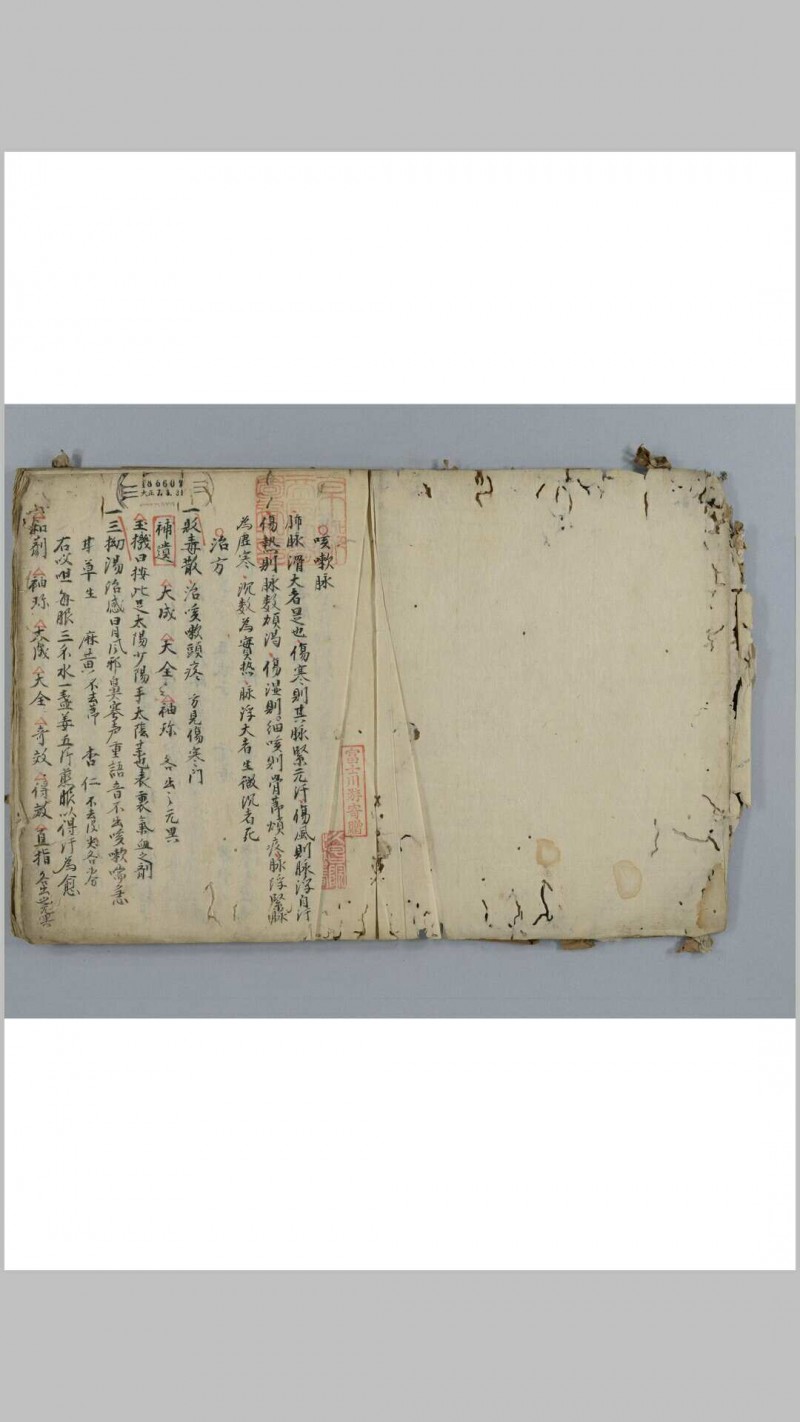 咳嗽脉
肺脉滑大者是也傷寒則其脉緊无汗傷風則脉浮自汗
傷熱則脉数煩渴傷湿則細咳則骨節煩疼脉浮緊
為虚寒沉数為實热脉浮大者生微沉者死
治方
一敗毒散治咳嗽頭疼方見傷寒门
補遺 大成 大全 袖珍 各出之元異
玉機曰按此足太陽少陽手太陰表裏氣血之剤
一三拗湯治感冒風邪鼻塞声重語音不出咳嗽喘急
甘草生 麻黄不去節 杏仁不去皮尖各等
右㕮咀每服三不水一盞姜五片煎服以得汗為愈
和剤 袖珍 大成 大全 奇效 得效 直指
富士川游寄贈
186607
大正